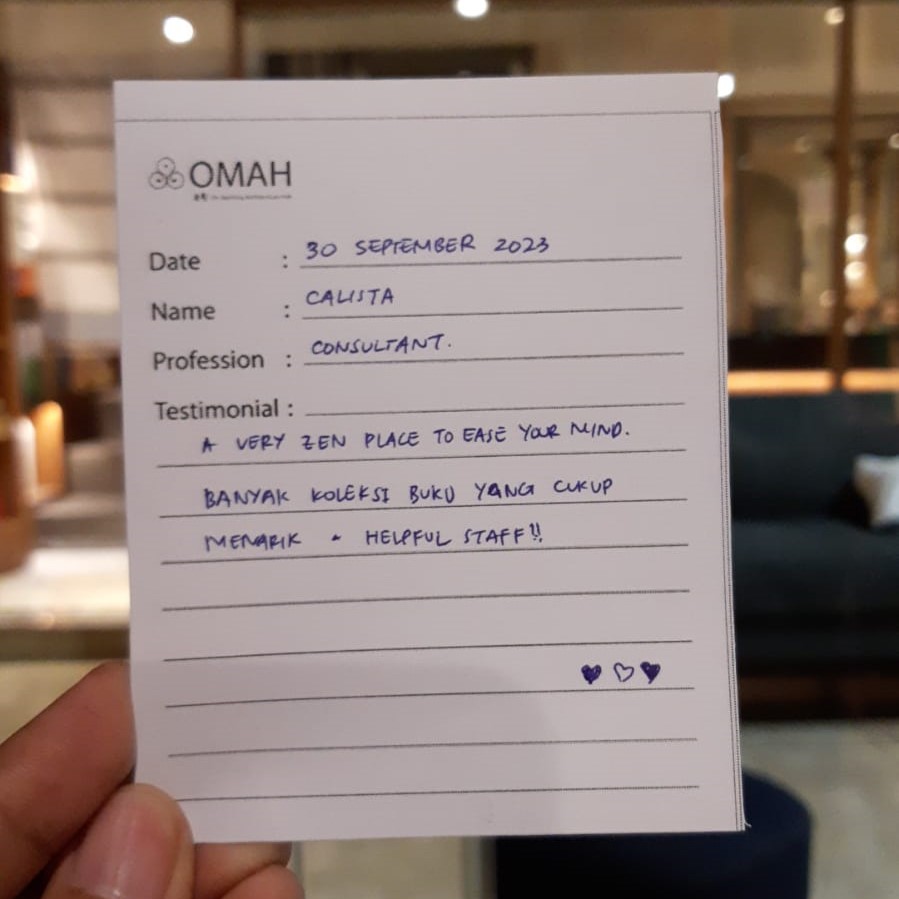 OMAH
Date : 30 SEPTEMBER 2023
Name : CALISTA
Profession : CONSULTANT.
Testimonial :
A VERY ZEN PLACE TO EASE YOUR MIND.
BANYAK KOLEKSI BUKU YANG CUKUP
MENARIK - HELPFUL STAFF!!